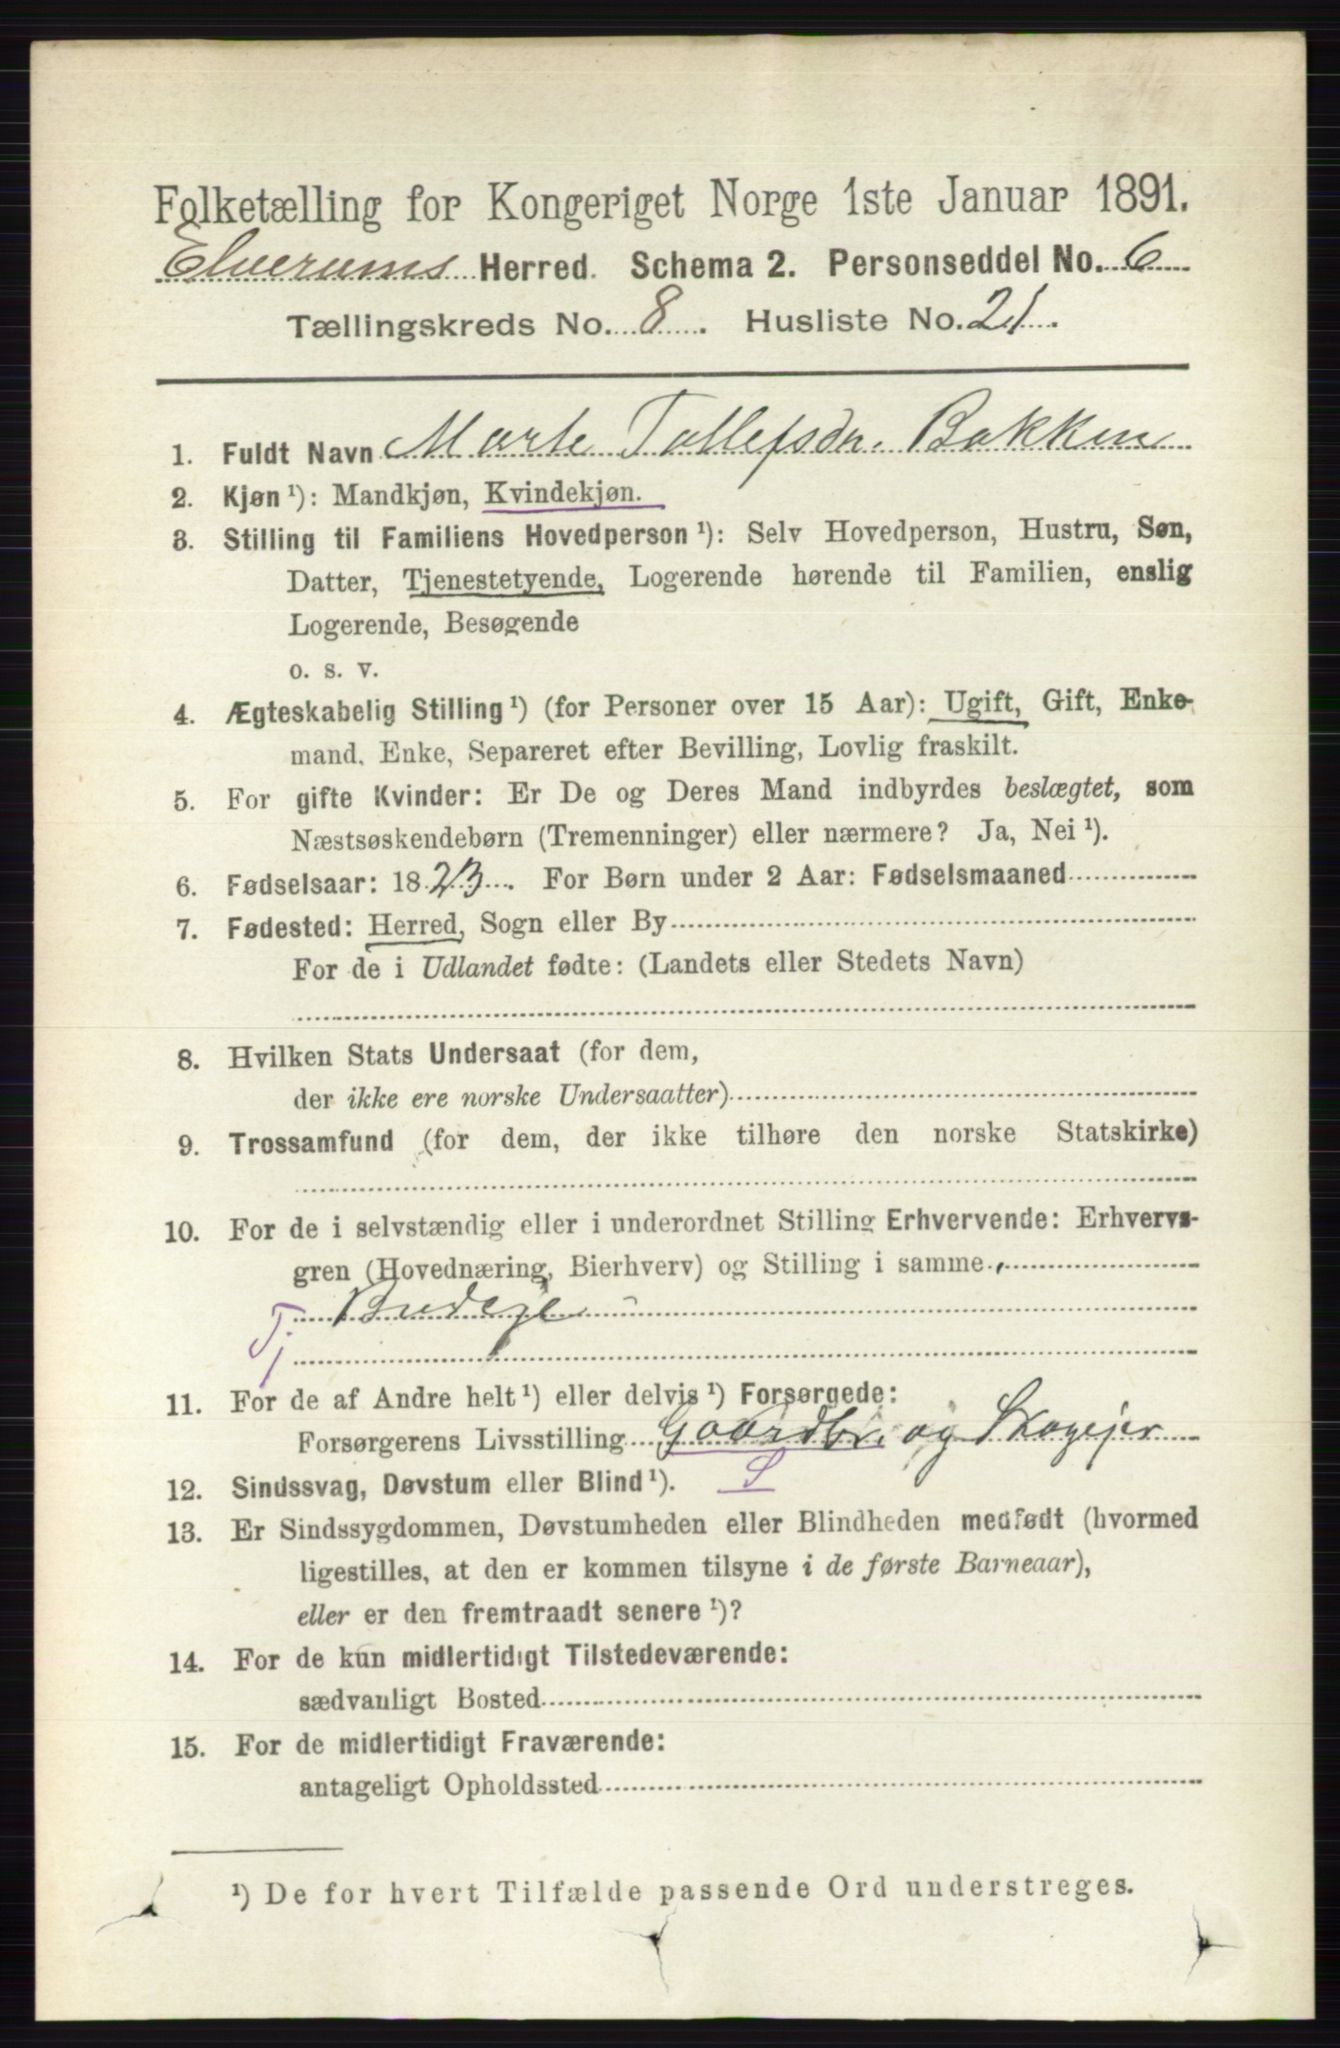 Folketælling for Kongeriget Norge 1ste Januar 1891.
Elverums Herred. Schema 2. Personseddel No. 6
Tællingskreds No. 8. Husliste No. 21.
1. Fuldt Navn Marte Tollefsdr. Bakken
2. Kjøn¹): Mandkjøn, Kvindekjøn.
3. Stilling til Familiens Hovedperson¹): Selv Hovedperson, Hustru, Søn,
Datter, Tjenestetyende, Logerende hørende til Familien, enslig
Logerende, Besøgende
o. s. v.
4. Ægteskabelig Stilling¹) (for Personer over 15 Aar): Ugift, Gift, Enke-
mand, Enke, Separeret efter Bevilling, Lovlig fraskilt.
5. For gifte Kvinder: Er De og Deres Mand indbyrdes beslægtet, som
Næstsøskendebørn (Tremenninger) eller nærmere? Ja, Nei¹).
6. Fødselsaar: 1823. For Børn under 2 Aar: Fødselsmaaned
7. Fødested: Herred, Sogn eller By
For de i Udlandet fødte: (Landets eller Stedets Navn)
8. Hvilken Stats Undersaat (for dem,
der ikke ere norske Undersaatter)
9. Trossamfund (for dem, der ikke tilhøre den norske Statskirke)
10. For de i selvstændig eller i underordnet Stilling Erhvervende: Erhvervs-
gren (Hovednæring, Bierhverv) og Stilling i samme
Budeje
Tj
11. For de af Andre helt¹) eller delvis¹) Forsørgede:
Forsørgerens Livsstilling Gaardbr. og Skogejer
S
12. Sindssvag, Døvstum eller Blind¹).
13. Er Sindssygdommen, Døvstumheden eller Blindheden medfødt (hvormed
ligestilles, at den er kommen tilsyne i de første Barneaar),
eller er den fremtraadt senere¹)?
14. For de kun midlertidigt Tilstedeværende:
sædvanligt Bosted
15. For de midlertidigt Fraværende:
antageligt Opholdssted
¹) De for hvert Tilfælde passende Ord understreges.